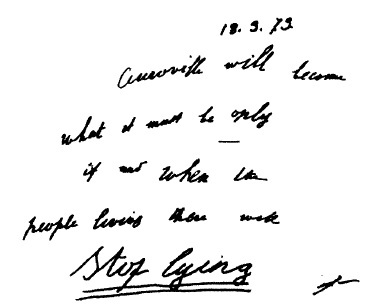 18.3.73
Auroville will become
what it must be only
if and when the
people living there will
Stop lying